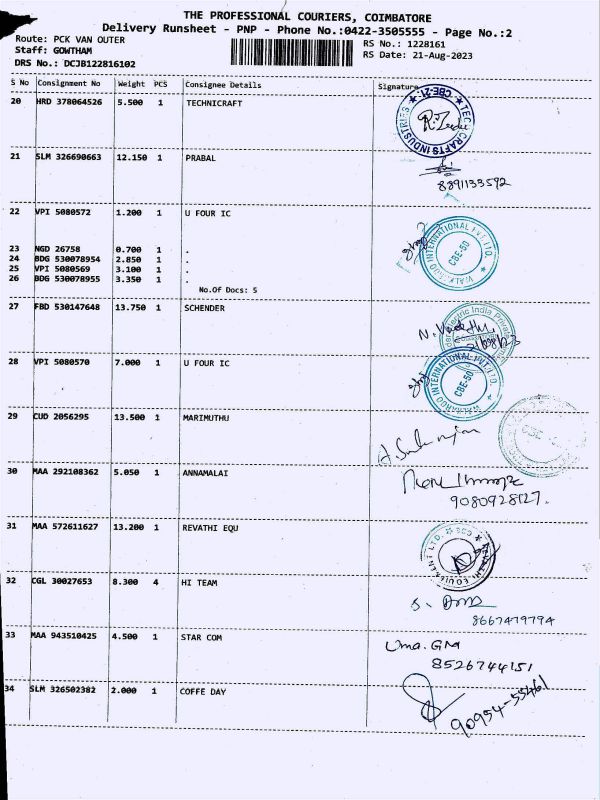 THE PROFESSIONAL COURIERS, COIMBATORE
Delivery Runsheet - PNP - Phone No.:0422-3505555 - Page No.:2
Route: PCK VAN OUTER
Staff: GOWTHAM
DRS No.: DCJB122816102
RS No.: 1228161
RS Date: 21-Aug-2023
S No Consignment No Weight PCS Consignee Details Signature
20 HRD 378064526 5.500 1 TECHNICRAFT
TECHNICRAFTS INDUSTRIES CBE-21
21 SLM 326690663 12.150 1 PRABAL
8891133592
22 VPI 5080572 1.200 1 U FOUR IC
INTERNATIONAL PVT. LTD. CBE-50
23 NGD 26758 0.700 1 .
24 BDG 530078954 2.850 1 .
25 VPI 5080569 3.100 1 .
26 BDG 530078955 3.350 1 .
No.Of Docs: 5
27 FBD 530147648 13.750 1 SCHENDER
Electric India Private
28 VPI 5080570 7.000 1 U FOUR IC
INTERNATIONAL PVT. LTD. CBE-50
29 CUD 2056295 13.500 1 MARIMUTHU
30 MAA 292108362 5.050 1 ANNAMALAI
9080928127.
31 MAA 572611627 13.200 1 REVATHI EQU
32 CGL 30027653 8.300 4 HI TEAM
8667479794
33 MAA 943510425 4.500 1 STAR COM
Uma. GM
8526744151
34 SLM 326502382 2.000 1 COFFE DAY
90954-55461